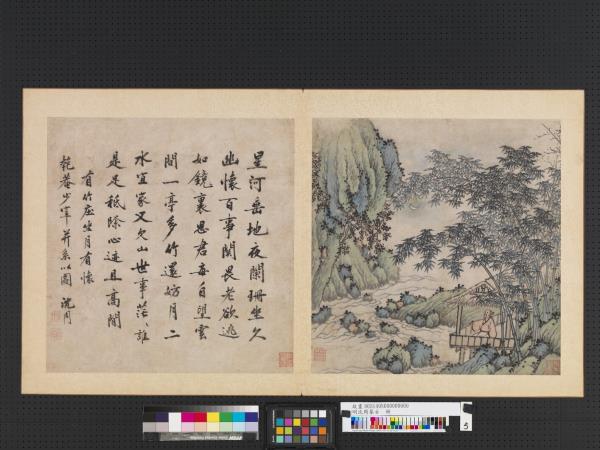 星河垂地夜闌珊坐久
幽懷百事閑畏老欲逃
如鏡裏思君每自望雲
間一亭多竹還妨月二
水宜家又欠山世事茫〻誰
是足秪除心迹且高閒
有竹莊坐月有懷
乾菴少宰并系以圖 沈周
5